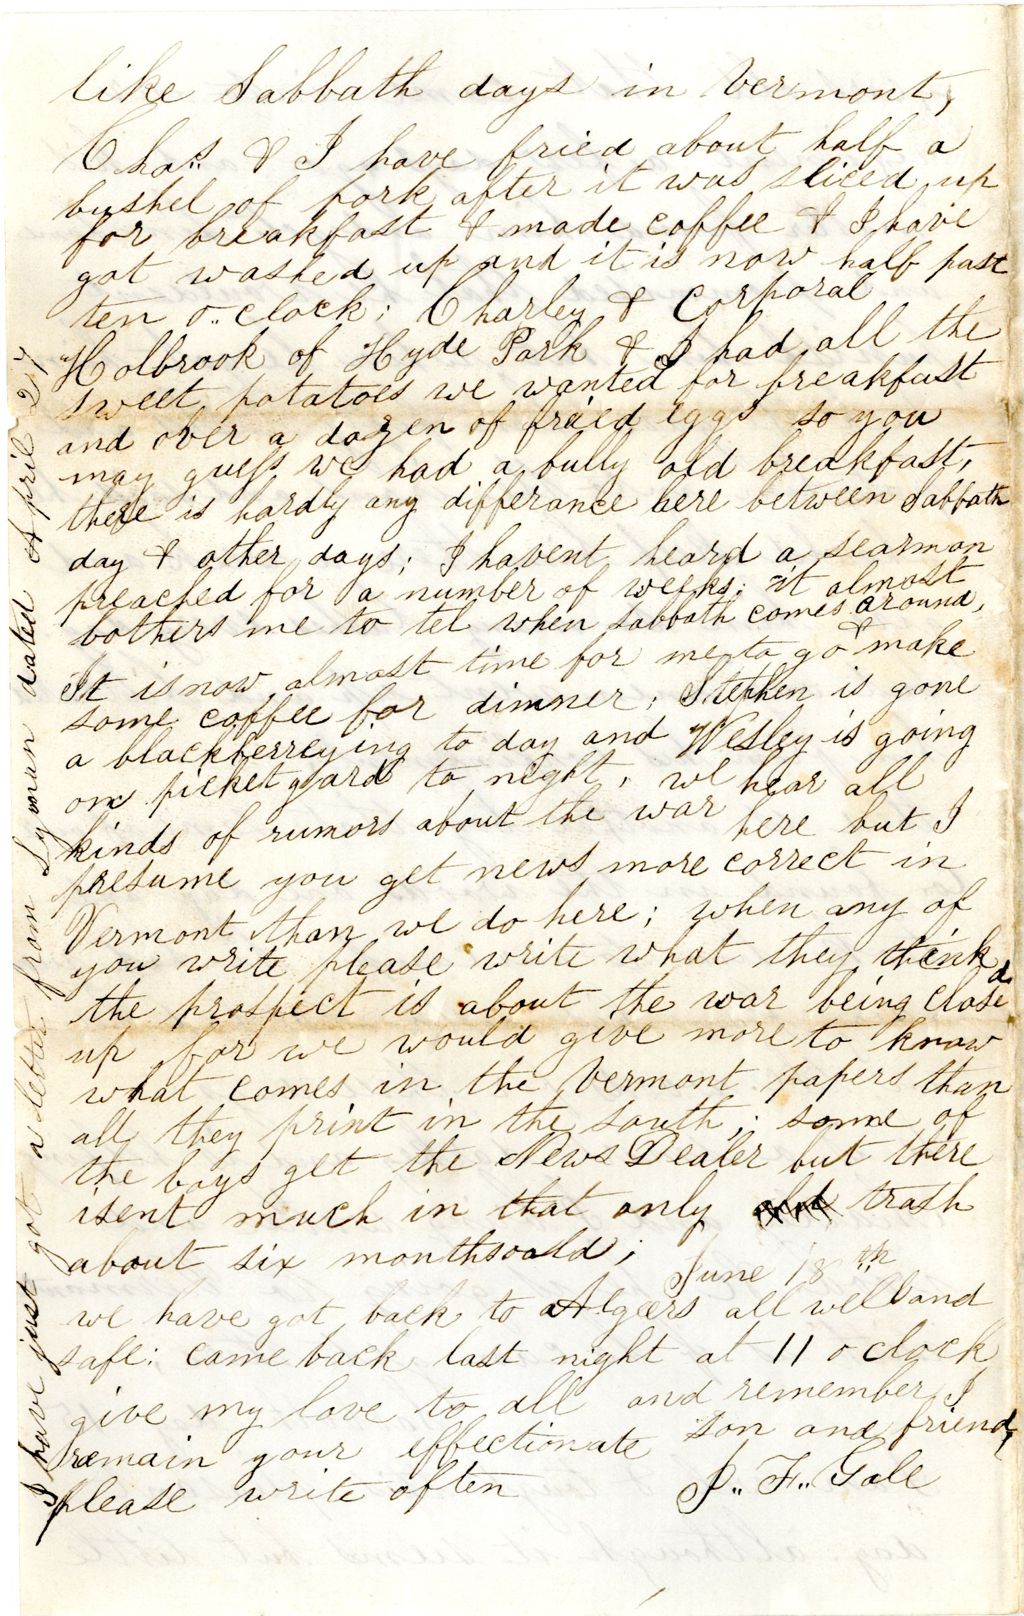 like Sabbath days in Vermont,
Chas. & I have fried about half a
bushel of pork after it was sliced up
for breakfast & made coffee & I have
got washed up and it is now half past
ten o..clock; Charley & Corporal
Holbrook of Hyde Park & I had all the
sweet potatoes we wanted for breakfast
and over a dozen of fraied eggs so you
may guess we had a bully old breakfast,
there is hardly any differance here between Sabbath
day & other days; I havent heard a searmon
preached for a number of weeks; it almost
bothers me to tel when Sabbath comes around,
It is now almost time for me to go & make
some coffee for dinner; Stephen is gone
a blackberreying to day and Wesley is going
on picket gard to night, we hear all
kinds of rumors about the war here but I
presume you get news more correct in
Vermont than we do here; when any of
you write please write what they think
the prospect is about the war being closed
up for we would give more to know
what comes in the Vermont papers than
all they print in the south; some of
the boys get the News Dealer but there
isent much in that only trash
about six months oald;
June 18th
we have got back to Algiers all well and
safe; came back last night at 11 o clock
give my love to all and remember I
remain your effectionate son and friend,
please write often J.. F.. Gale
I have just got a letter from Lyman dated April 27